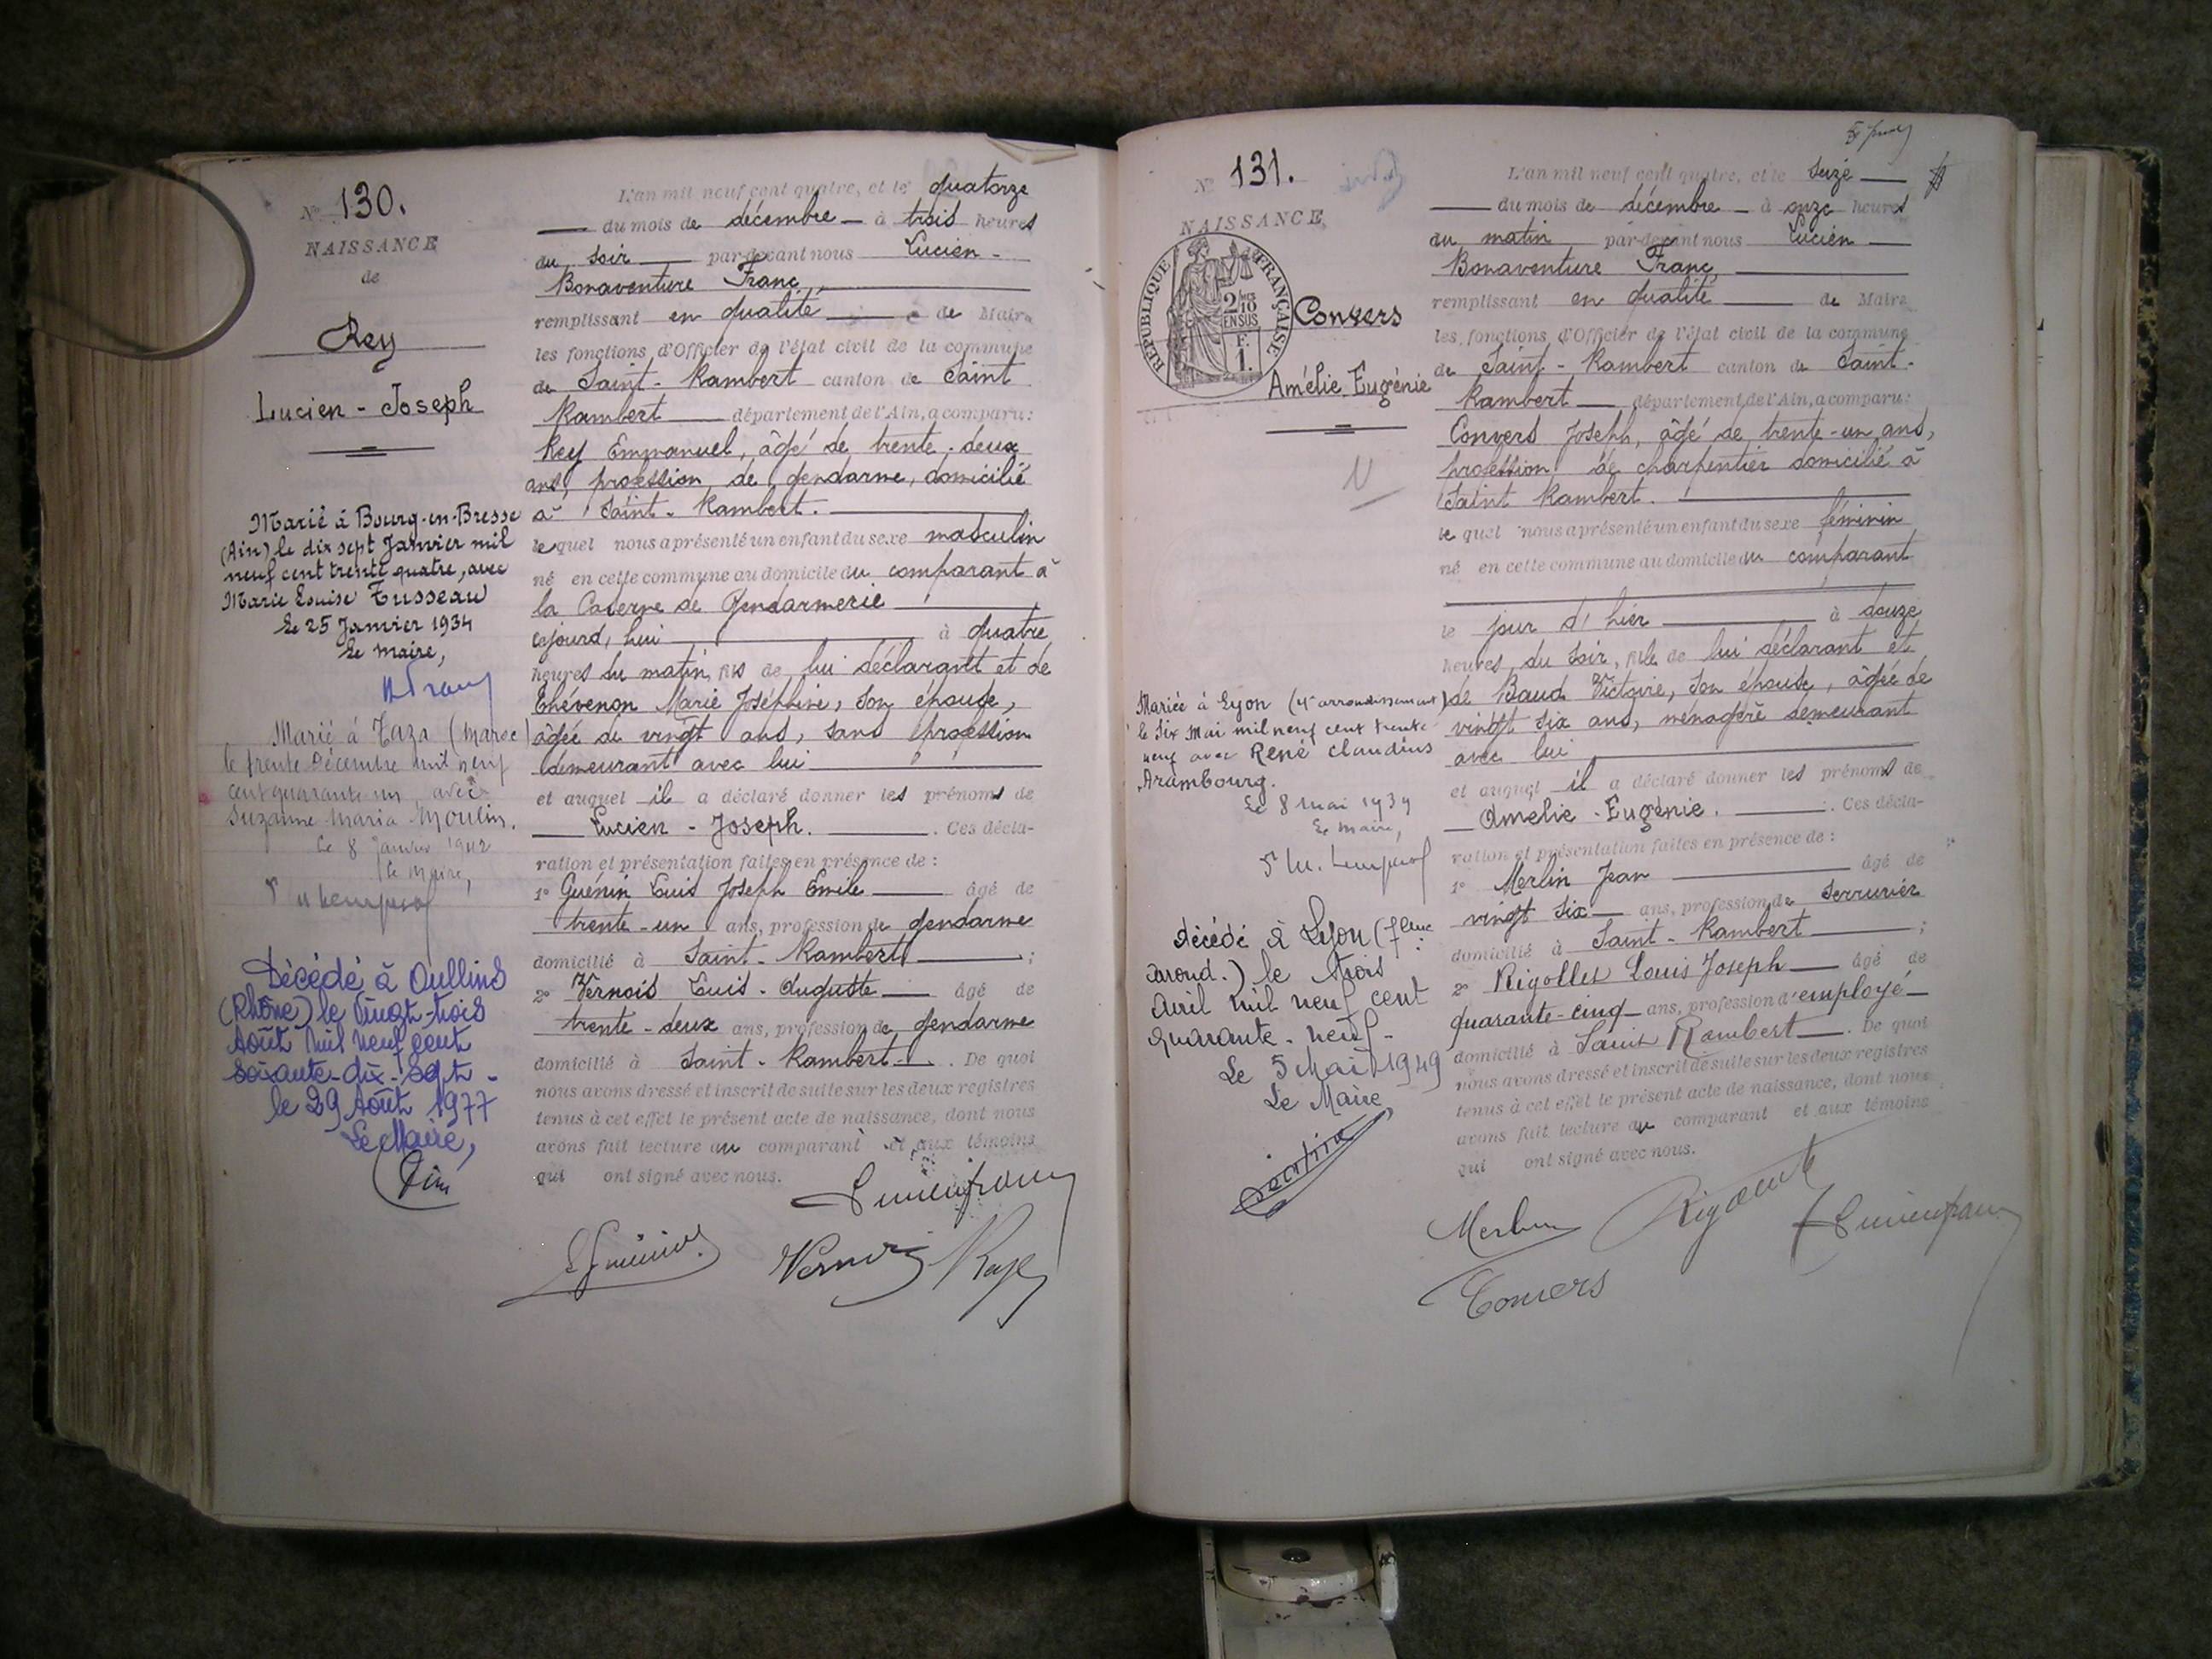 N° 130.
NAISSANCE
de
Rey
Lucien - Joseph
Marié à Bourg-en-Bresse
(Ain) le dix sept Janvier mil
neuf cent trente quatre, avec
Marie Louise Tusseau
Le 25 Janvier 1934
Le maire,
Marié à Taza (Maroc)
le trente Décembre mil neuf
cent quarante un, avec
Suzanne Maria Moulin.
Le 8 Janvier 1942
le Maire,
Décédé à Oullins
(Rhône) le Vingt-trois
Août mil neuf cent
soixante-dix-sept -
le 29 Août 1977
Le Maire,
L'an mil neuf cent quatre, et le quatorze
du mois de décembre à trois heures
du soir par-devant nous Lucien -
Bonaventure Franc,
remplissant en qualité de Maire
les fonctions d'Officier de l'état civil de la commune
de Saint - Rambert canton de Saint
Rambert département de l'Ain, a comparu:
Rey Emmanuel, âgé de trente-deux
ans, profession de gendarme, domicilié
à Saint - Rambert.
lequel nous a présenté un enfant du sexe masculin
né en cette commune au domicile du comparant à
la Caserne de Gendarmerie
cejourd'hui à quatre
heures du matin, fils de lui déclarant et de
Thévenon Marie Joséphine, son épouse,
âgée de vingt ans, sans profession
demeurant avec lui
et auquel il a déclaré donner les prénoms de
Lucien - Joseph. Ces décla-
ration et présentation faites en présence de :
1° Guénin Louis Joseph Emile âgé de
trente-un ans, profession de gendarme
domicilié à Saint - Rambert ;
2° Vernois Louis - Auguste âgé de
trente-deux ans, profession de gendarme
domicilié à Saint - Rambert. De quoi
nous avons dressé et inscrit de suite sur les deux registres
tenus à cet effet le présent acte de naissance, dont nous
avons fait lecture au comparant et aux témoins
qui ont signé avec nous.
N° 131.
NAISSANCE,
RÉPUBLIQUE FRANÇAISE
2/10
EN SUS
F.
1.
Convers
Amélie Eugénie
Mariée à Lyon (4e arrondissement)
le Six Mai mil neuf cent trente
neuf avec René Claudius
Arambourg.
Le 8 Mai 1939
Le Maire,
Décédé à Lyon (7eme
arrond.) le trois
Avril mil neuf cent
quarante-neuf-
Le 5 Mai 1949
Le Maire
L'an mil neuf cent quatre, et le seize
du mois de décembre à onze heures
du matin par-devant nous Lucien
Bonaventure Franc,
remplissant en qualité de Maire
les fonctions d'Officier de l'état civil de la commune
de Saint - Rambert canton de Saint -
Rambert département de l'Ain, a comparu:
Convers Joseph, âgé de trente-un ans,
profession de charpentier domicilié à
Saint Rambert.
lequel nous a présenté un enfant du sexe féminin
né en cette commune au domicile du comparant
le jour d'hier à douze
heures du soir, fille de lui déclarant et
de Baud Victoire, son épouse, âgée de
vingt six ans, ménagère demeurant
avec lui
et auquel il a déclaré donner les prénoms de
Amélie - Eugénie. Ces décla-
ration et présentation faites en présence de :
1° Merlin Jean âgé de
vingt six ans, profession de serrurier
domicilié à Saint - Rambert ;
2° Rigollet Louis Joseph âgé de
quarante-cinq ans, profession d'employé
domicilié à Saint Rambert. De quoi
nous avons dressé et inscrit de suite sur les deux registres
tenus à cet effet le présent acte de naissance, dont nous
avons fait lecture au comparant et aux témoins
qui ont signé avec nous.
Merlin
Convers